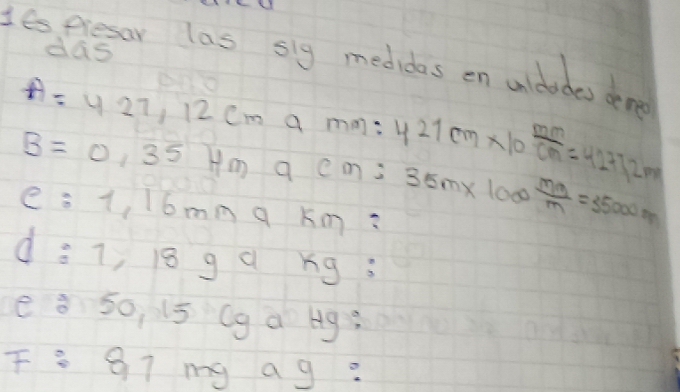 1 Espresar las sig medidas en unidades
das
A = 427,12 cm a mm: 427 cm x 10 mm/cm = 4271,2 mm
B = 0,35 Hm a cm: 35m x 1000 mm/m = 35000 m
c: 1,16 mm a km:
d: 1,18 g a kg:
e: 50,15 cg a Hg:
F: 81 mg a g: